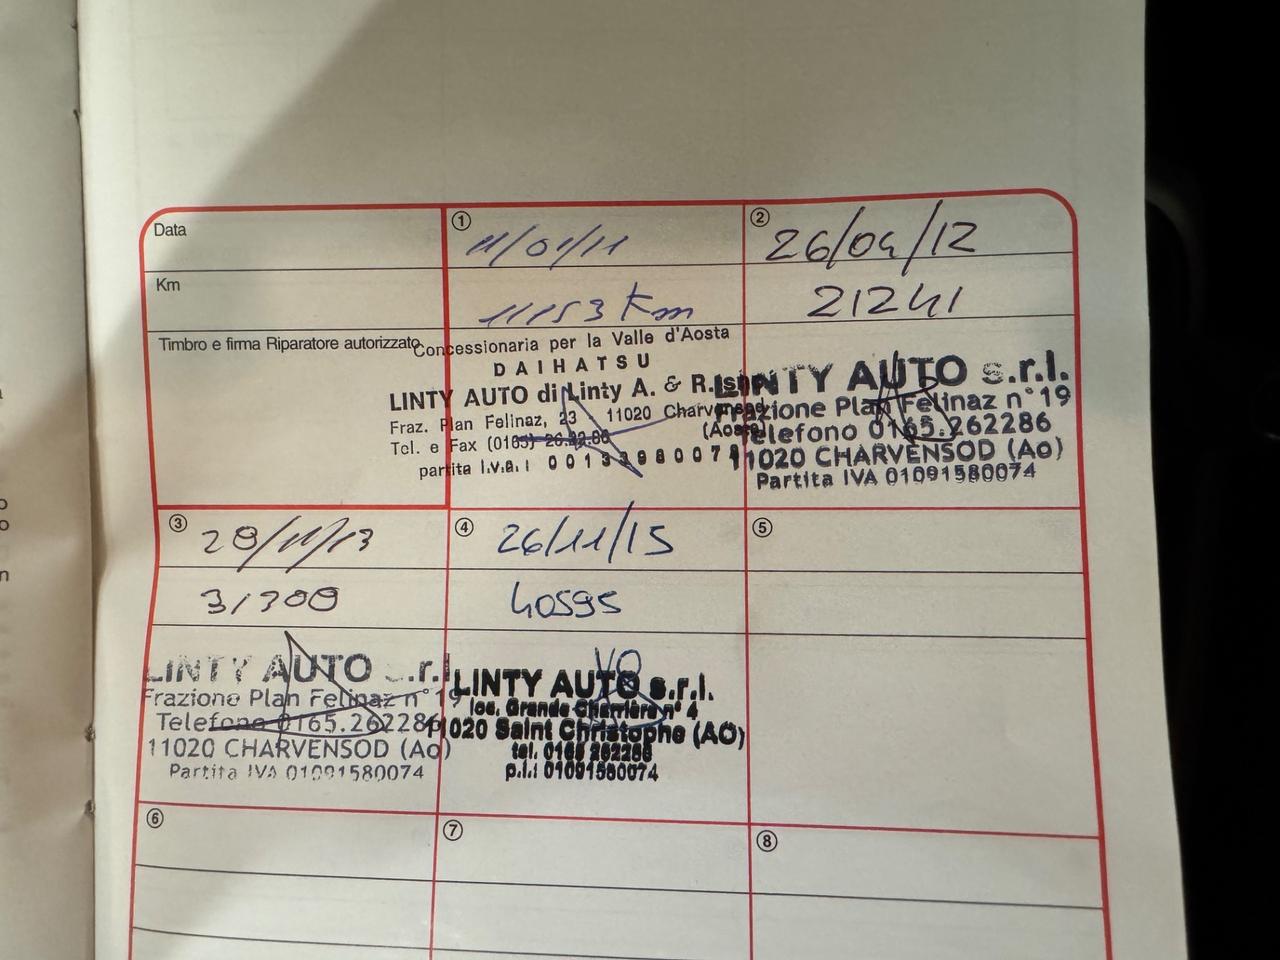 Data
① 11/01/11
② 26/04/12
Km
11153 Km
21241
Timbro e firma Riparatore autorizzato
Concessionaria per la Valle d'Aosta
DAIHATSU
LINTY AUTO di Linty A. & R.
Fraz. Plan Felinaz, 23 11020
(Aosta)
Tel. e Fax (0165)
partita I.v.a.:
LINTY AUTO s.r.l.
Frazione Plan Felinaz n° 19
Telefono 0165.262286
11020 CHARVENSOD (Ao)
Partita IVA 01091580074
③ 28/11/13
④ 26/11/15
⑤
31300
40595
LINTY AUTO s.r.l.
Frazione Plan Felinaz n° 19
Telefono 0165.262286
11020 CHARVENSOD (Ao)
Partita IVA 01091580074
LINTY AUTO s.r.l.
loc. Grande Charrière n° 4
11020 Saint Christophe (AO)
tel. 0165 262286
p.i.: 01091580074
⑥
⑦
⑧